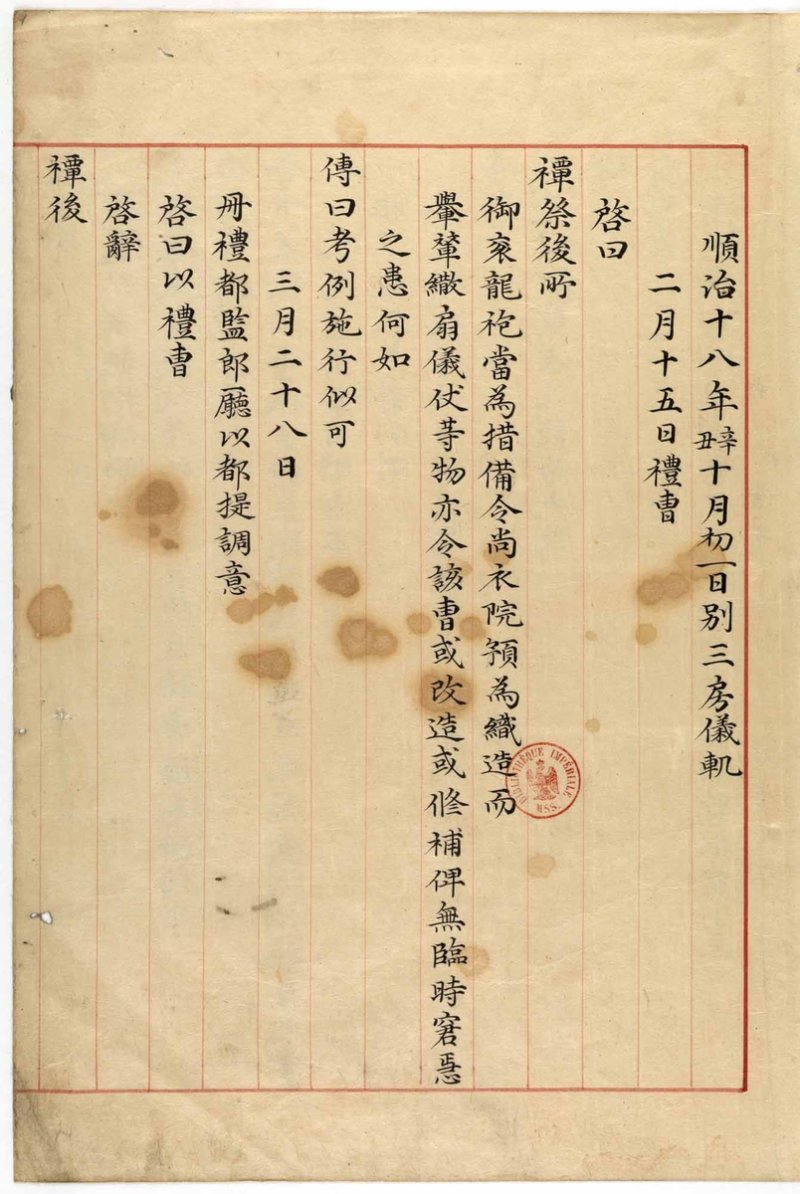 順治十八年辛丑十月初一日別三房儀軌
二月十五日禮曹
啓曰
禫祭後所
御衮龍袍當為措備令尚衣院預為織造而
轝輦繖扇儀仗等物亦令該曹或改造或修補俾無臨時窘惡
之患何如
傳曰考例施行似可
三月二十八日
冊禮都監郎廳以都提調意
啓曰以禮曹
啓辭
禫後
BIBLIOTHÈQUE IMPÉRIALE
MSS.